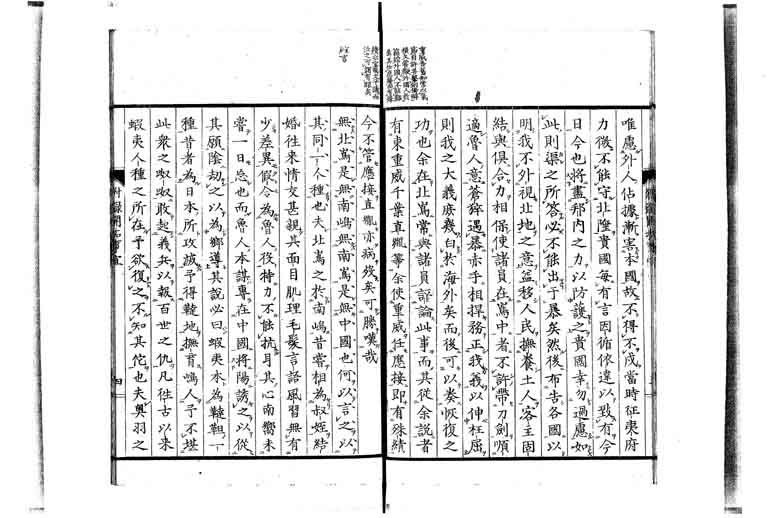 唯慮外人佔據漸害本國故不得不戍當時征東府
力微不能守北陞貴國每有言因循依違以致有今
日今也將盡邦內之力以防護之貴國幸勿過慮如
此則渠之所答必不能出于暴矣然後布告各國以
明我不外視北地之意益移人民撫養土人客主固
結與俱合力相保使諸員在嶌中者不許帶刀劍順
適魯人意蒼猝遇暴赤手相捍務正我義以伸枉屈
則我之大義庶幾白於海外矣而後可以奏恢復之
功也余在北嶌常與諸員評論此事而其從余說者
有東重威千葉直胤等余使重威任應接即有殊績
今不管應接直胤亦病殘矣可勝嘆哉
無北嶌是無南嶋無南嶌是無中國也何以言之以
其同一人種也夫北嶌之於南嶋昔嘗相為叔姪結
婚往來情交甚親其面目肌理毛髮言語風習無有
少差異假令為魯人役持力不能抗耳其心南嚮未
嘗一日忘也而魯人本謀專在中國將陽誘之以從
其願陰劫之以為鄉導其說必曰蝦夷本為韃靼一
種昔者為日本所攻誠予得韃地撫育嶋人予不堪
此衆之呶呶敢起義兵以報百世之仇凡往古以來
蝦夷人種之所在予欲復之不知其佗也夫奧羽之